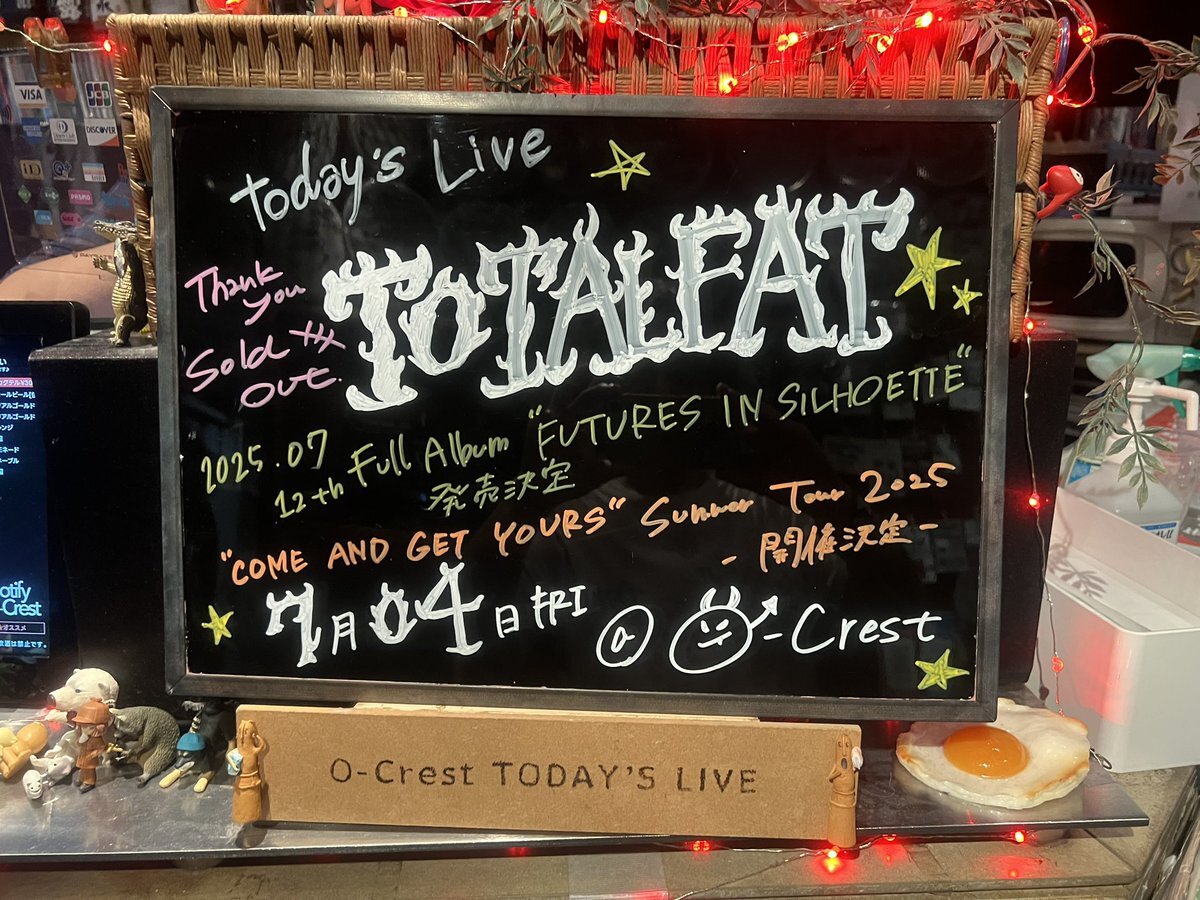 VISA
JCB
DISCOVER
iD
PASMO
Today's Live
TOTALFAT
Thank
you
Sold
out.
2025.07
12th Full Album "FUTURES IN SILHOETTE"
発売決定
"COME AND GET YOURS" Summer Tour 2025
- 開催決定 -
7月04日 FRI
-Crest
O-Crest TODAY'S LIVE
-Crest